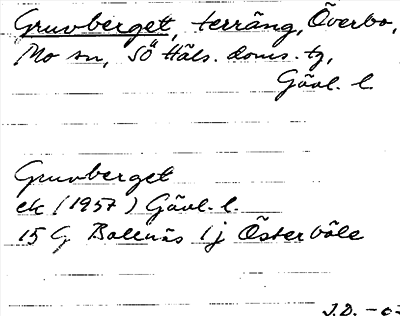 Gruvberget, terräng, Överbo,
Mo sn, SÖ Häls. doms. tg,
Gävl. l.
Gruvberget
ek (1957) Gävl. l.
15 G Bollnäs 1j Österböle
J.D. -